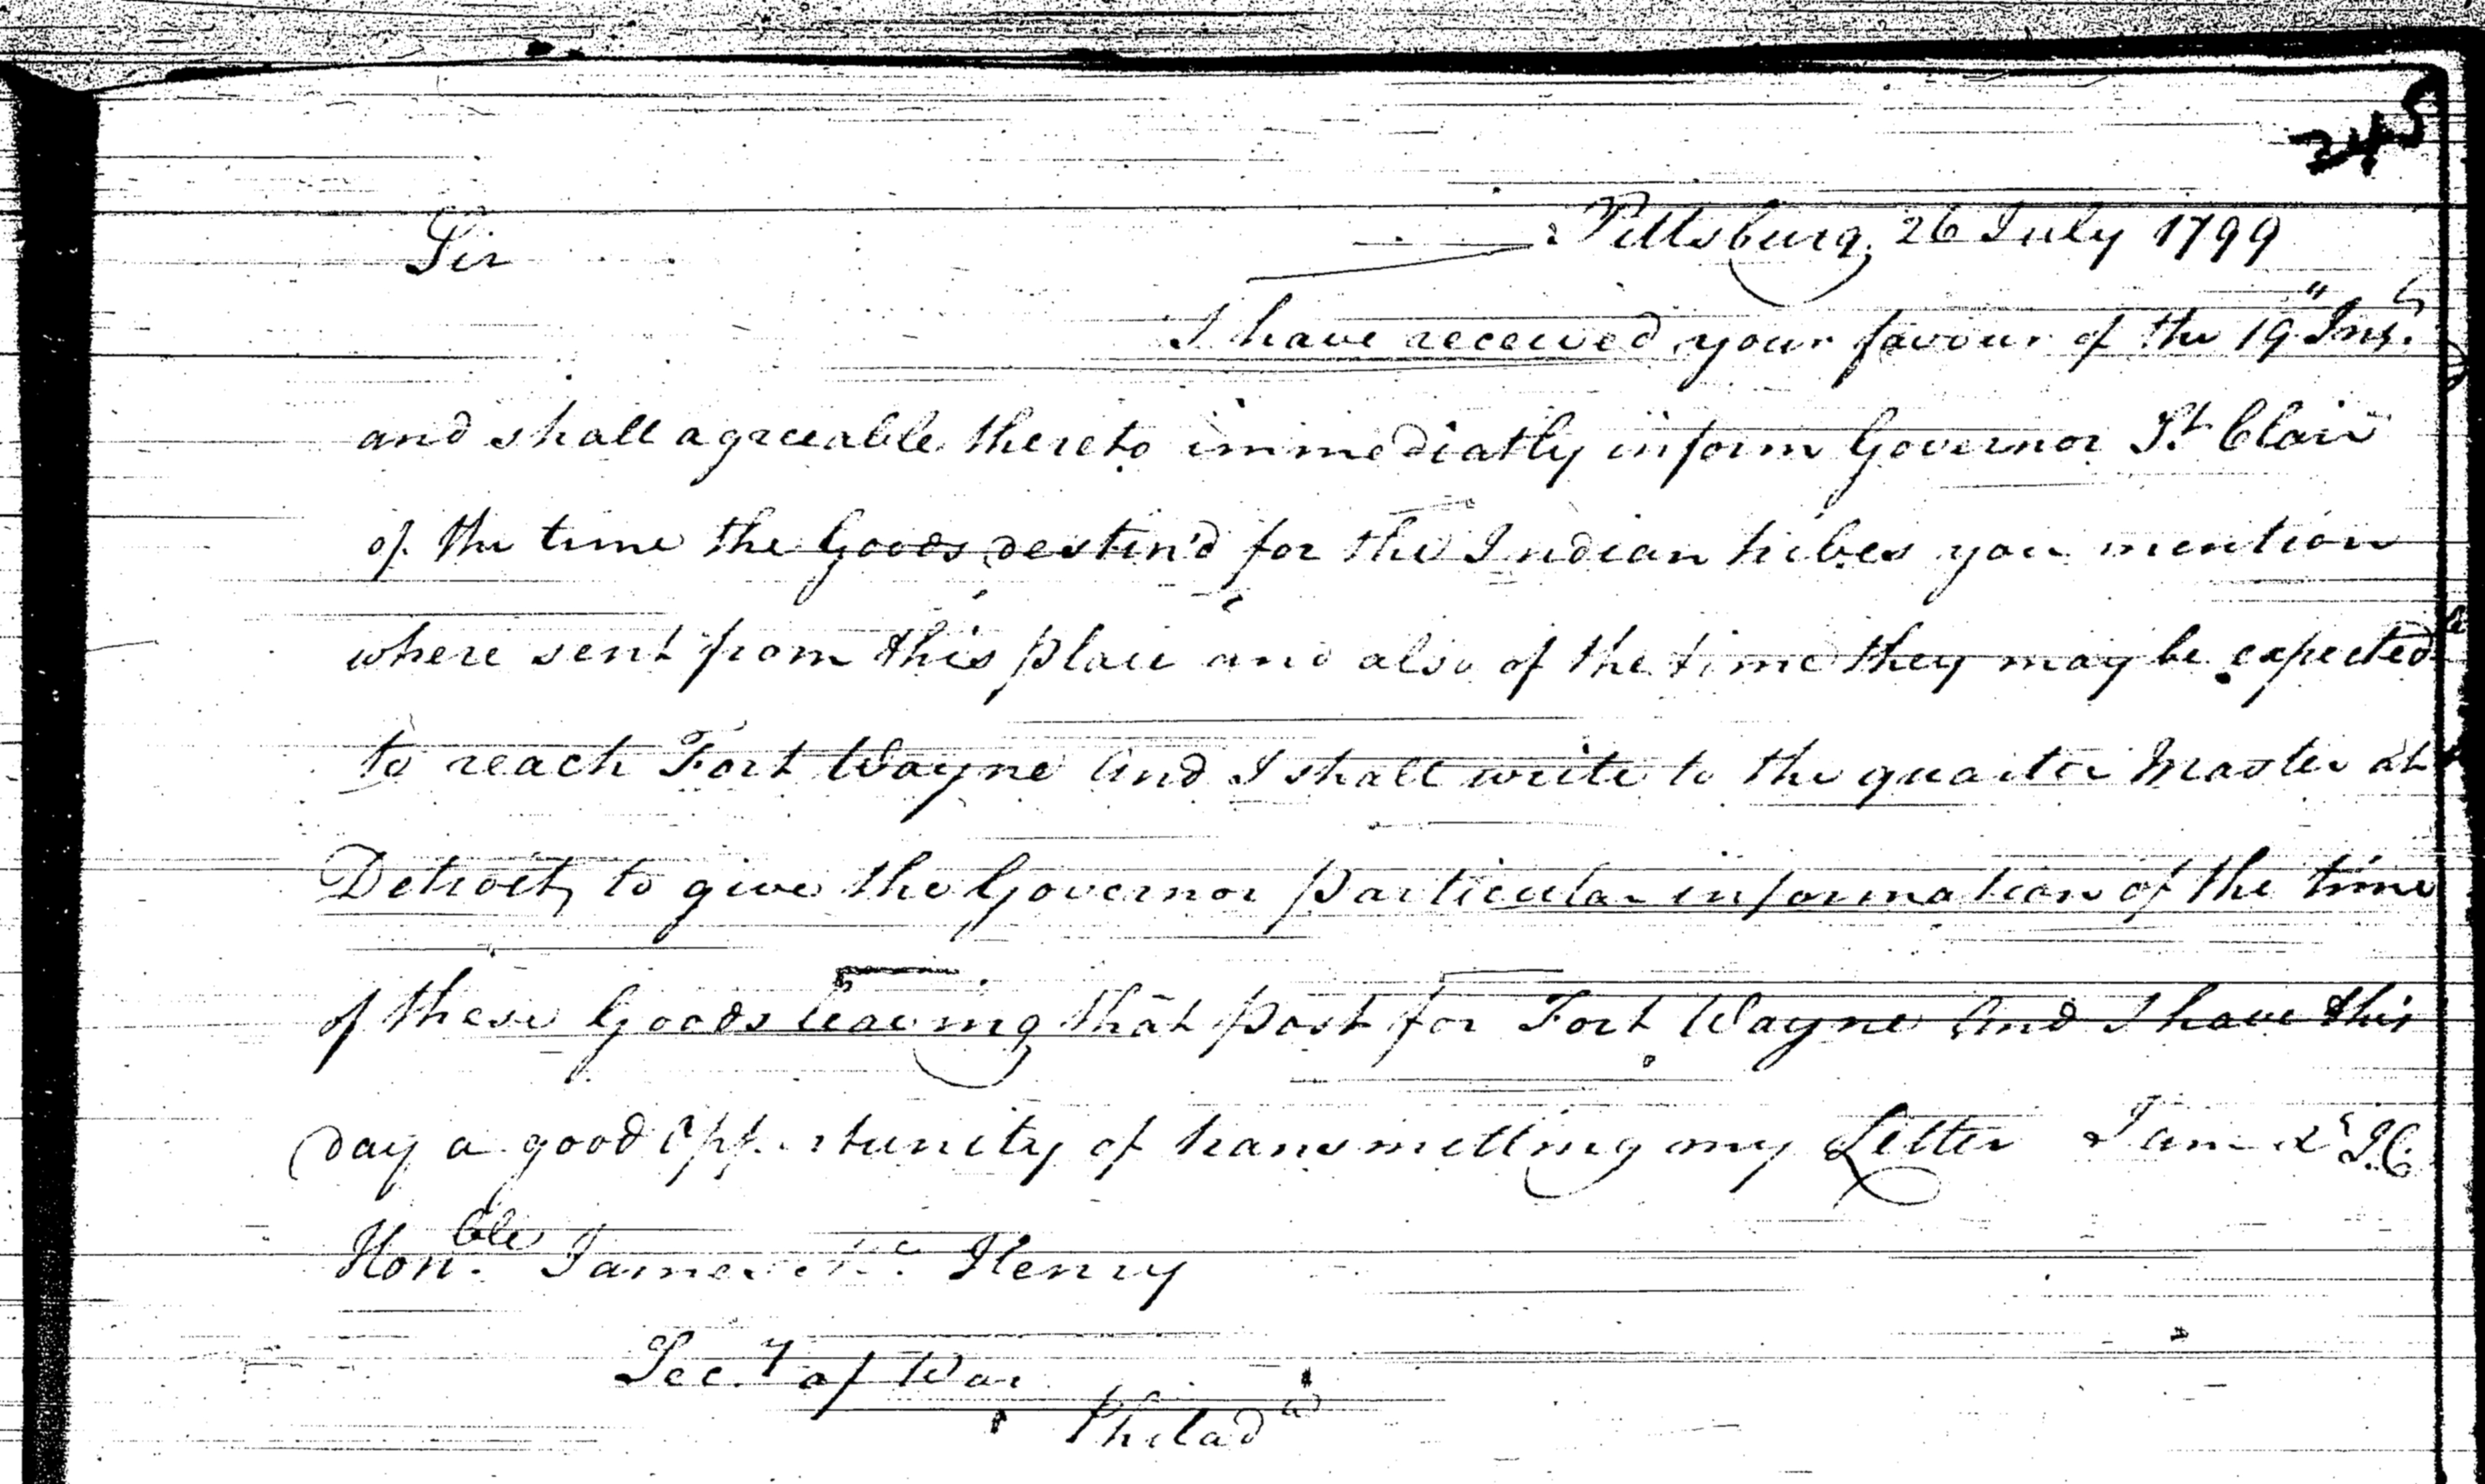 245
Pittsburg, 26 July 1799
Sir
I have received your favour of the 19th Inst.
and shall agreeable thereto immediatly inform Governor St. Clair
of the time the Goods destin'd for the Indian tribes you mention
where sent from this place and also of the time they may be expected
to reach Fort Wayne and I shall write to the quarter Master at
Detroit, to give the Governor particular information of the time
of these Goods leaving that post for Fort Wayne and I have this
day a good Opportunity of transmitting my Letter I am &c J.C.
Honble. James Mc Henry
Secy of War
Philada